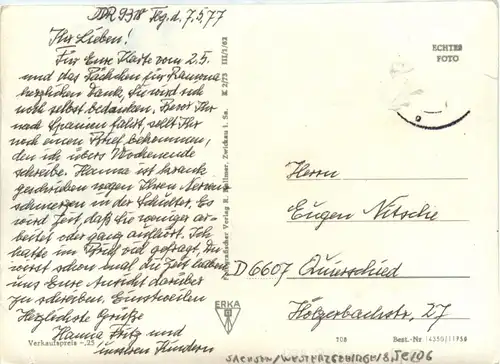 DDR 9318 Tbg. d. 7.5.77
Ihr Lieben!
Für Eure Karte vom 2.5.
und das Päckchen für Ramona
herzlichen Dank, sie wird sich
noch selbst bedanken. Bevor Ihr
nach Spanien fahrt, sollt Ihr
noch einen Brief bekommen,
den ich übers Wochenende
schreibe. Hanna ist krank
geschrieben wegen Ihren Nerven-
schmerzen in der Schulter. Es
wird Zeit, daß sie weniger ar-
beitet oder ganz aufhört. Ich
hatte im Brief viel gefragt, Du
wirst schon mal die Zeit haben
uns Eure Ansicht darüber
zu schreiben. Einstweilen
Herzlichste Grüße
Hanna Fritz und
unsern Kindern
Verkaufspreis -,25
K 2/73 III/1/83
Fotografischer Verlag R. Zwickau i. Sa.
ERKA
ECHTES
FOTO
Herrn
Eugen Nitsche
D 6607 Quierschied
Holzerbachstr. 27
108 Best.-Nr 14350/11958
SACHSEN/WESTERZGEBIRGE/